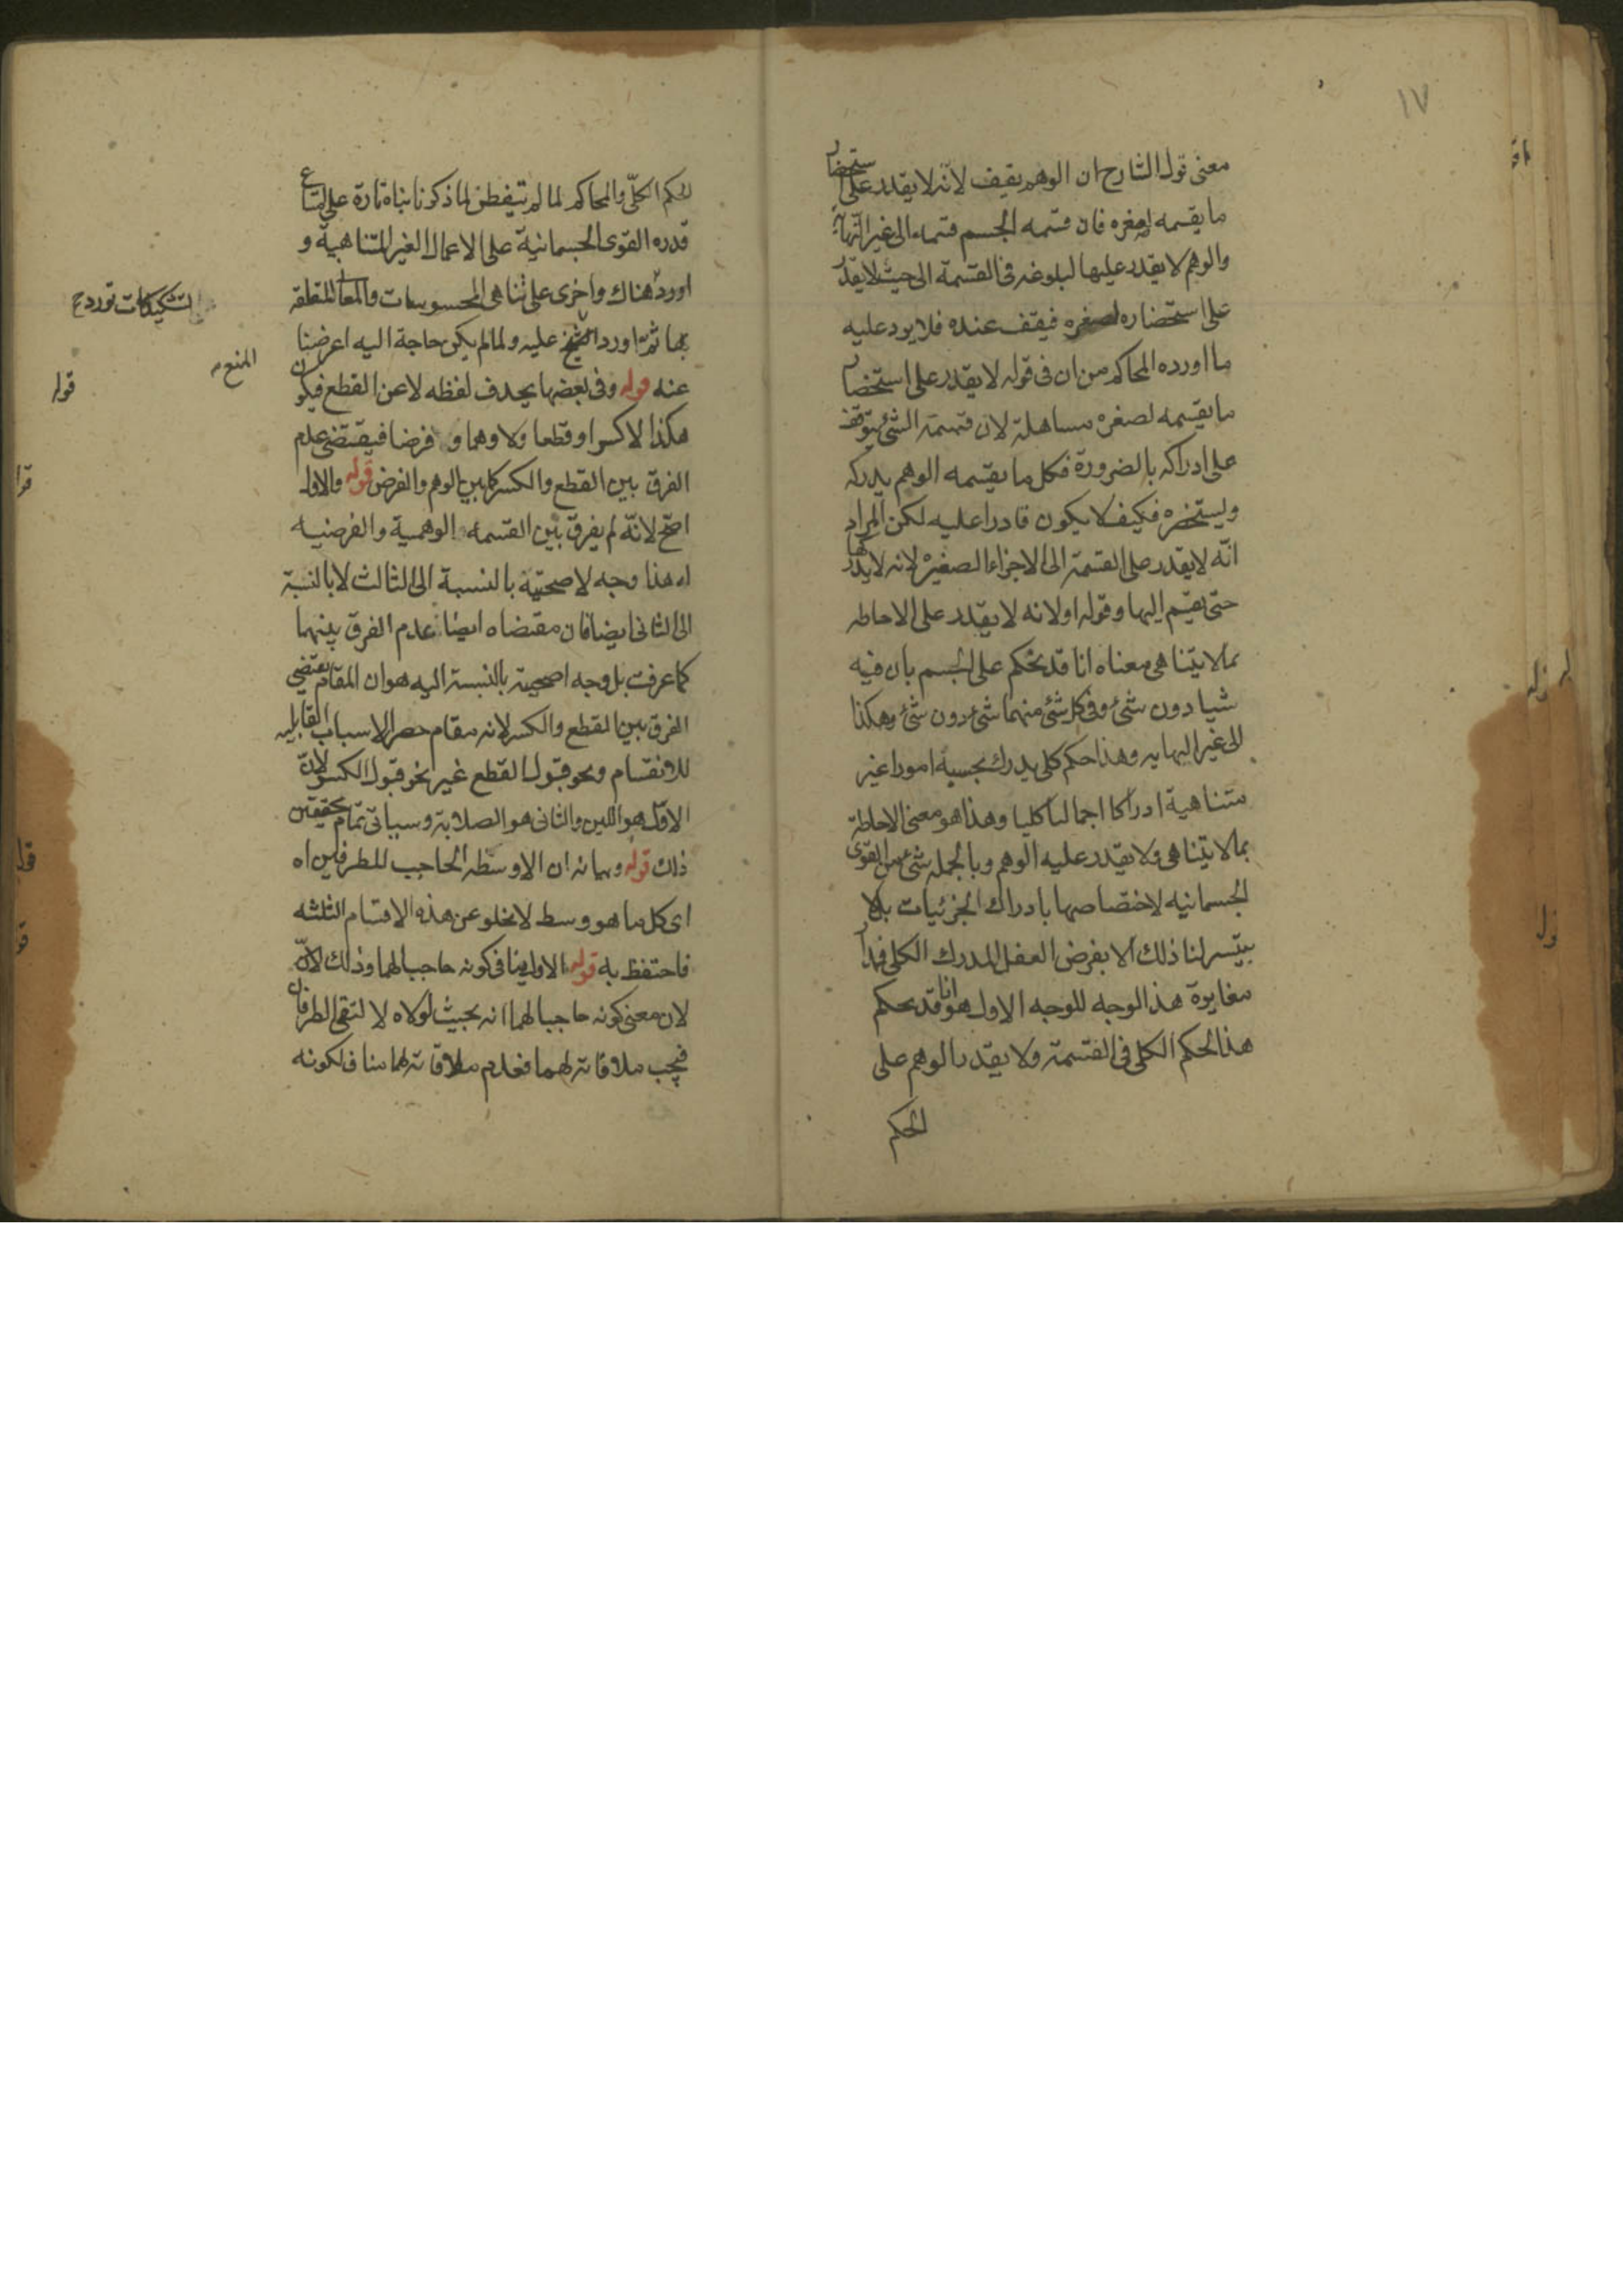 ١٧
معنى قول الشارح ان الوهم يقف لانه لا يقدر على استحضار
ما يقسمه لصغره فان قسمه الجسم قسمه الى غير النهاية
والوهم لا يقدر عليها لبلوغه فى القسمة الى حيث لا يقدر
على استحضاره لصغره فيقف عنده فلا يرد عليه
ما اورده المحاكم من ان فى قوله لا يقدر على استحضار
ما يقسمه لصغره مساهلة لان قسمة الشئ يتوقف
على ادراكه بالضرورة فكل ما يقسمه الوهم يدركه
ويستحضره فكيف لا يكون قادرا عليه لكن المراد
انّه لا يقدر على القسمة الى الاجزاء الصغيرة لانه لا يدركها
حتى يقسم اليها وقوله اولانه لا يقدر على الاحاطه
بما لا يتناهى معناه انا قد نحكم على الجسم بان فيه
شيا دون شئ وفى كل شئ منهما شئ دون شئ وهكذا
الى غير النهايه وهذا حكم كلى يدرك بحسبه امورا غير
متناهية ادراكا اجماليا كليا وهذا هو معنى الاحاطة
بما لا يتناهى ولا يقدر عليه الوهم وبالجمله شئ من القوى
الجسمانيه لاختصاصها بادراك الجزئيات بل لا
يتيسر لنا ذلك الا بفرض العقل المدرك الكلى فمدار
مغايرة هذا الوجه للوجه الاول هو انا قد نحكم
هذا الحكم الكلى فى القسمة ولا يقدر الوهم على
الحكم
الحكم الكلّى والمحاكم لما لم يتفطن لما ذكرنا بناه تارة على امتناع
قدره القوى الجسمانية على الاعمال الغير المتناهية و
اورد هناك واخرى على تناهى المحسوسات والمعانى المتعلقه
بها ثمّ اورد المنع عليه ولما لم يكن حاجة اليه اعرضنا
عنه قوله وفى بعضها بحذف لفظه لا عن القطع فيكون
هكذا لا كسرا وقطعا ولا وهما و فرضا فيقتضى عدم
الفرق بين القطع والكسر كما بين الوهم والفرض قوله والاول
اصحّ لانّه لم يفرق بين القسمه الوهمية والفرضيه
اه هذا وجه لاصحيّة بالنسبة الى الثالث لا بالنسبة
الى الثانى ايضا فان مقتضاه ايضا عدم الفرق بينهما
كما عرفت بل وجه اصحيته بالنسبة اليه هو ان المقام يقتضى
الفرق بين القطع والكسر لانه مقام حصر الاسباب القابليه
للانقسام ونحو قبول القطع غير نحو قبول الكسر لانّ
الاوّل هو اللين والثانى هو الصلابة وسياتى تمام تحقيق
ذلك قوله وبيانه ان الاوسط الحاجب للطرفين اه
اى كل ما هو وسط لا يخلو عن هذه الاقسام الثلثه
فاحتفظ به قوله الاول ينافى كونه حاجبا لهما وذلك لانّ
لان معنى كونه حاجبا لهما انه بحيث لولاه لا لتقى الطرفان
فيجب ملاقاته لهما فعدم ملاقاته لهما مناف لكونه
التشكيكات تورد ح
المنع م
قوله